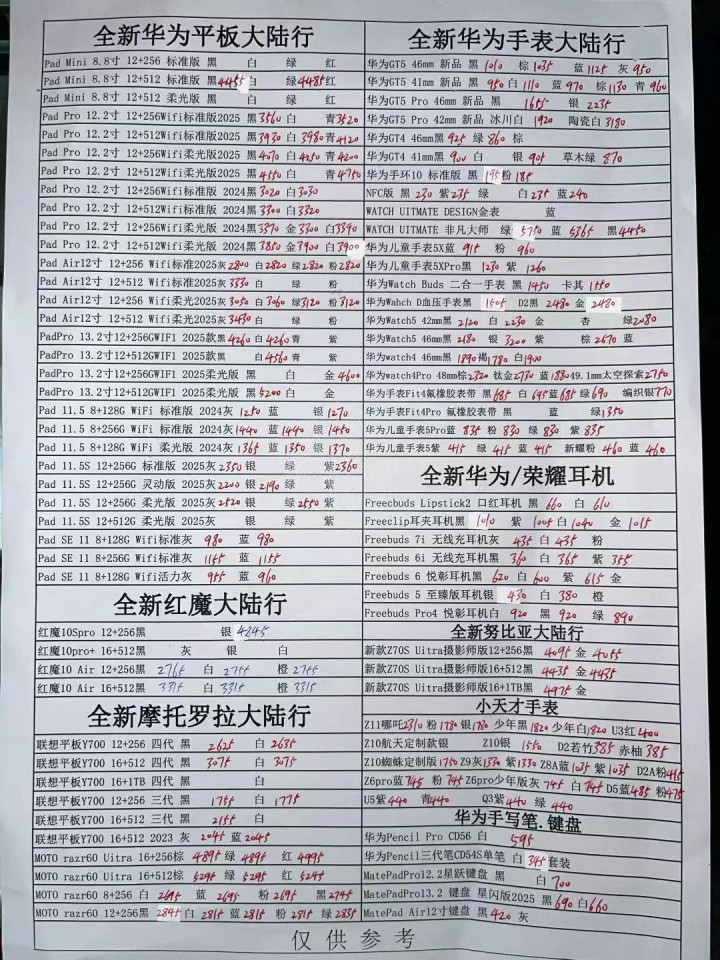 全新华为平板大陆行
Pad Mini 8.8寸 12+256 标准版 黑 白 绿 红
Pad Mini 8.8寸 12+512 标准版 黑4455白 绿4485红
Pad Mini 8.8寸 12+512 柔光版 黑 白 绿 红
Pad Pro 12.2寸 12+256Wifi标准版2025 黑3560白 青3520
Pad Pro 12.2寸 12+512Wifi标准版2025 黑3930白3980青4120
Pad Pro 12.2寸 12+256Wifi柔光版2025 黑4070白4250青4200
Pad Pro 12.2寸 12+512Wifi柔光版2025 黑4550白 青4750
Pad Pro 12.2寸 12+256Wifi标准版 2024黑3020白3030
Pad Pro 12.2寸 12+512Wifi标准版 2024黑3300白3320
Pad Pro 12.2寸 12+256Wifi柔光版 2024黑3370金3300白3390
Pad Pro 12.2寸 12+512Wifi柔光版 2024黑3850金3900白3900
Pad Air12寸 12+256 Wifi标准2025灰2800白2820绿2820粉2820
Pad Air12寸 12+512 Wifi标准2025灰3330白 绿 粉
Pad Air12寸 12+256 Wifi柔光2025灰3050白3060绿3120粉3120
Pad Air12寸 12+512 Wifi柔光2025灰3430白 绿 粉
PadPro 13.2寸12+256GWIF1 2025款黑4260白4260青 紫
PadPro 13.2寸12+512GWIF1 2025款黑 白4560青 紫
PadPro 13.2寸12+256GWIF1 2025柔光版 黑 白 金4600
PadPro 13.2寸12+512GWIF1 2025柔光版 黑5200白 金
Pad 11.5 8+128G WiFi 标准版 2024灰1250蓝 银1270
Pad 11.5 8+256G WiFi 标准版 2024灰1440蓝1440银1450
Pad 11.5 8+128G WiFi 柔光版 2024灰1365蓝1350银1370
Pad 11.5S 12+256G 标准版 2025灰2350银 绿 紫2360
Pad 11.5S 12+256G 灵动版 2025灰2200银2190绿 紫
Pad 11.5S 12+256G 柔光版 2025灰2520银 绿2550紫
Pad 11.5S 12+512G 柔光版 2025灰 银 绿 紫
Pad SE 11 8+128G Wifi标准灰 980 蓝 980
Pad SE 11 8+256G Wifi标准灰 1155 蓝 1155
Pad SE 11 8+128G Wifi活力灰 955 蓝 960
全新红魔大陆行
红魔10Spro 12+256黑 银4245
红魔10pro+ 16+512黑 灰 银 白
红魔10 Air 12+256黑 2765 白 2755 橙2755
红魔10 Air 16+512黑 3315 白 3315 橙3315
全新摩托罗拉大陆行
联想平板Y700 12+256 四代 黑 2625 白 2635
联想平板Y700 16+512 四代 黑 3075 白 3075
联想平板Y700 16+1TB 四代 黑 白
联想平板Y700 12+256 三代 黑 1755 白 1775
联想平板Y700 16+512 三代 黑 2155 白
联想平板Y700 16+512 2023 灰2045蓝2045
MOTO razr60 Uitra 16+256棕 4895绿4895 红4995
MOTO razr60 Uitra 16+512棕 5295绿5295 红5245
MOTO razr60 8+256 白2695 蓝2695 粉2695 黑2745
MOTO razr60 12+256黑2845白2815蓝2815粉2815绿2835
全新华为手表大陆行
华为GT5 46mm 新品 黑1010 棕1035 蓝1125 灰950
华为GT5 41mm 新品 黑950白1110蓝970棕1130青960
华为GT5 Pro 46mm 新品 黑 1655 银 2235
华为GT5 Pro 42mm 新品 冰川白 1920 陶瓷白3180
华为GT4 46mm黑925绿860棕
华为GT4 41mm黑900 白 银905 草木绿 870
华为手环10 标准版 黑195粉185
NFC版 黑230紫235绿 白235蓝240
WATCH UITMATE DESIGN金表 蓝
WATCH UITMATE 非凡大师 绿5750蓝5365黑4450
华为儿童手表5X蓝 915 粉 960
华为儿童手表5XPro黑 1230紫 1260
华为Watch Buds 二合一手表 黑1450 卡其1550
华为Wahch D血压手表黑 1505 D2黑2480金2480
华为Watch5 42mm黑2120白2230金 杏 绿2080
华为Watch5 46mm黑2180银3200紫 棕2670蓝
华为watch4 46mm黑1890褐1780白1900
华为watch4Pro 48mm棕2320钛金2730蓝188049.1mm太空探索2750
华为手表Fit4氟橡胶表带 黑685白645蓝685绿690 编织银770
华为手表Fit4Pro 氟橡胶表带 黑 蓝 绿1350
华为儿童手表5Pro蓝 835粉 830绿 830紫 835
华为儿童手表5紫 415绿 415蓝 415 新耀粉460蓝460
全新华为/荣耀耳机
Freecbuds Lipstick2 口红耳机 黑 660 白 610
Freeclip耳夹耳机黑 1010 紫 1005白1040 金 1015
Freebuds 7i 无线充耳机灰 435白435 粉
Freebuds 6i 无线充耳机黑 360白365紫355
Freebuds 6 悦彰耳机黑 620白600紫615金
Freebuds 5 至臻版耳机银 430白380橙
Freebuds Pro4 悦彰耳机白 920黑920绿890
全新努比亚大陆行
新款Z70S Uitra摄影师版12+256黑 4095金4055
新款Z70S Uitra摄影师版16+512黑 4435金4435
新款Z70S Uitra摄影师版16+1TB黑 4975金
小天才手表
Z11哪吒2310粉1780银1780少年黑1820少年白1820U3红400
Z10航天定制款银 Z10银 1550 D2若竹385赤柚385
Z10蜘蛛定制版1750灰Z9灰1330紫1330Z8A蓝1035紫1035D2A粉415
Z6pro蓝745粉745Z6pro少年版灰745白745D5蓝485粉475
U5紫440青440 Q3紫440绿440
华为手写笔.键盘
华为Pencil Pro CD56 白 595
华为Pencil三代笔CD54S单笔 白345套装
MatePadPro12.2星跃键盘 黑 白700
MatePadPro13.2 键盘 星闪版2025 黑690白660
MatePad Air12寸键盘 黑420灰
仅供参考